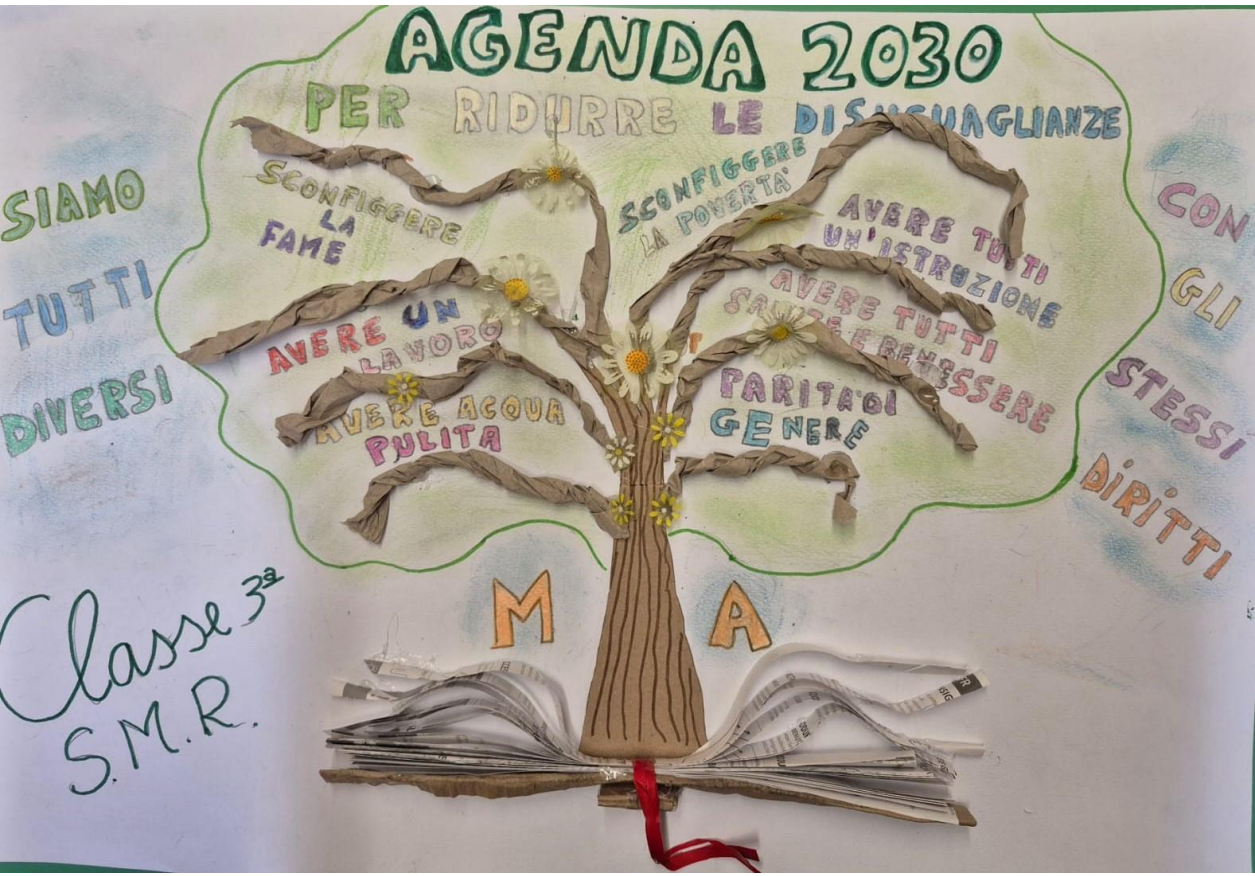 AGENDA 2030
PER RIDURRE LE DISUGUAGLIANZE
SIAMO
TUTTI
DIVERSI
SCONFIGGERE
LA
FAME
SCONFIGGERE
LA POVERTA'
AVERE TUTTI
UN'ISTRUZIONE
AVERE UN
LAVORO
AVERE TUTTI
SALUTE E BENESSERE
AVERE ACQUA
PULITA
PARITA' DI
GENERE
M A
CON
GLI
STESSI
DIRITTI
Classe 3ª
S.M.R.